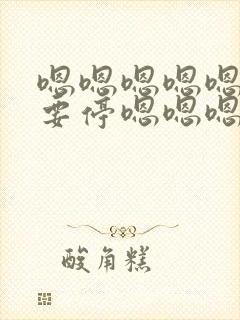 嗯嗯嗯嗯嗯
要停嗯嗯嗯
酸角糕